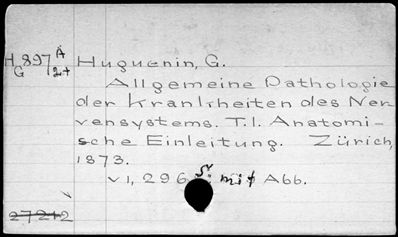 H 897 Ä Huguenin, G.
G 2+
Allgemeine Pathologie
der Krankheiten des Ner-
vensystems. T.1. Anatomi-
sche Einleitung. Zürich,
1873.
VI, 296 S. mit Abb.
27212